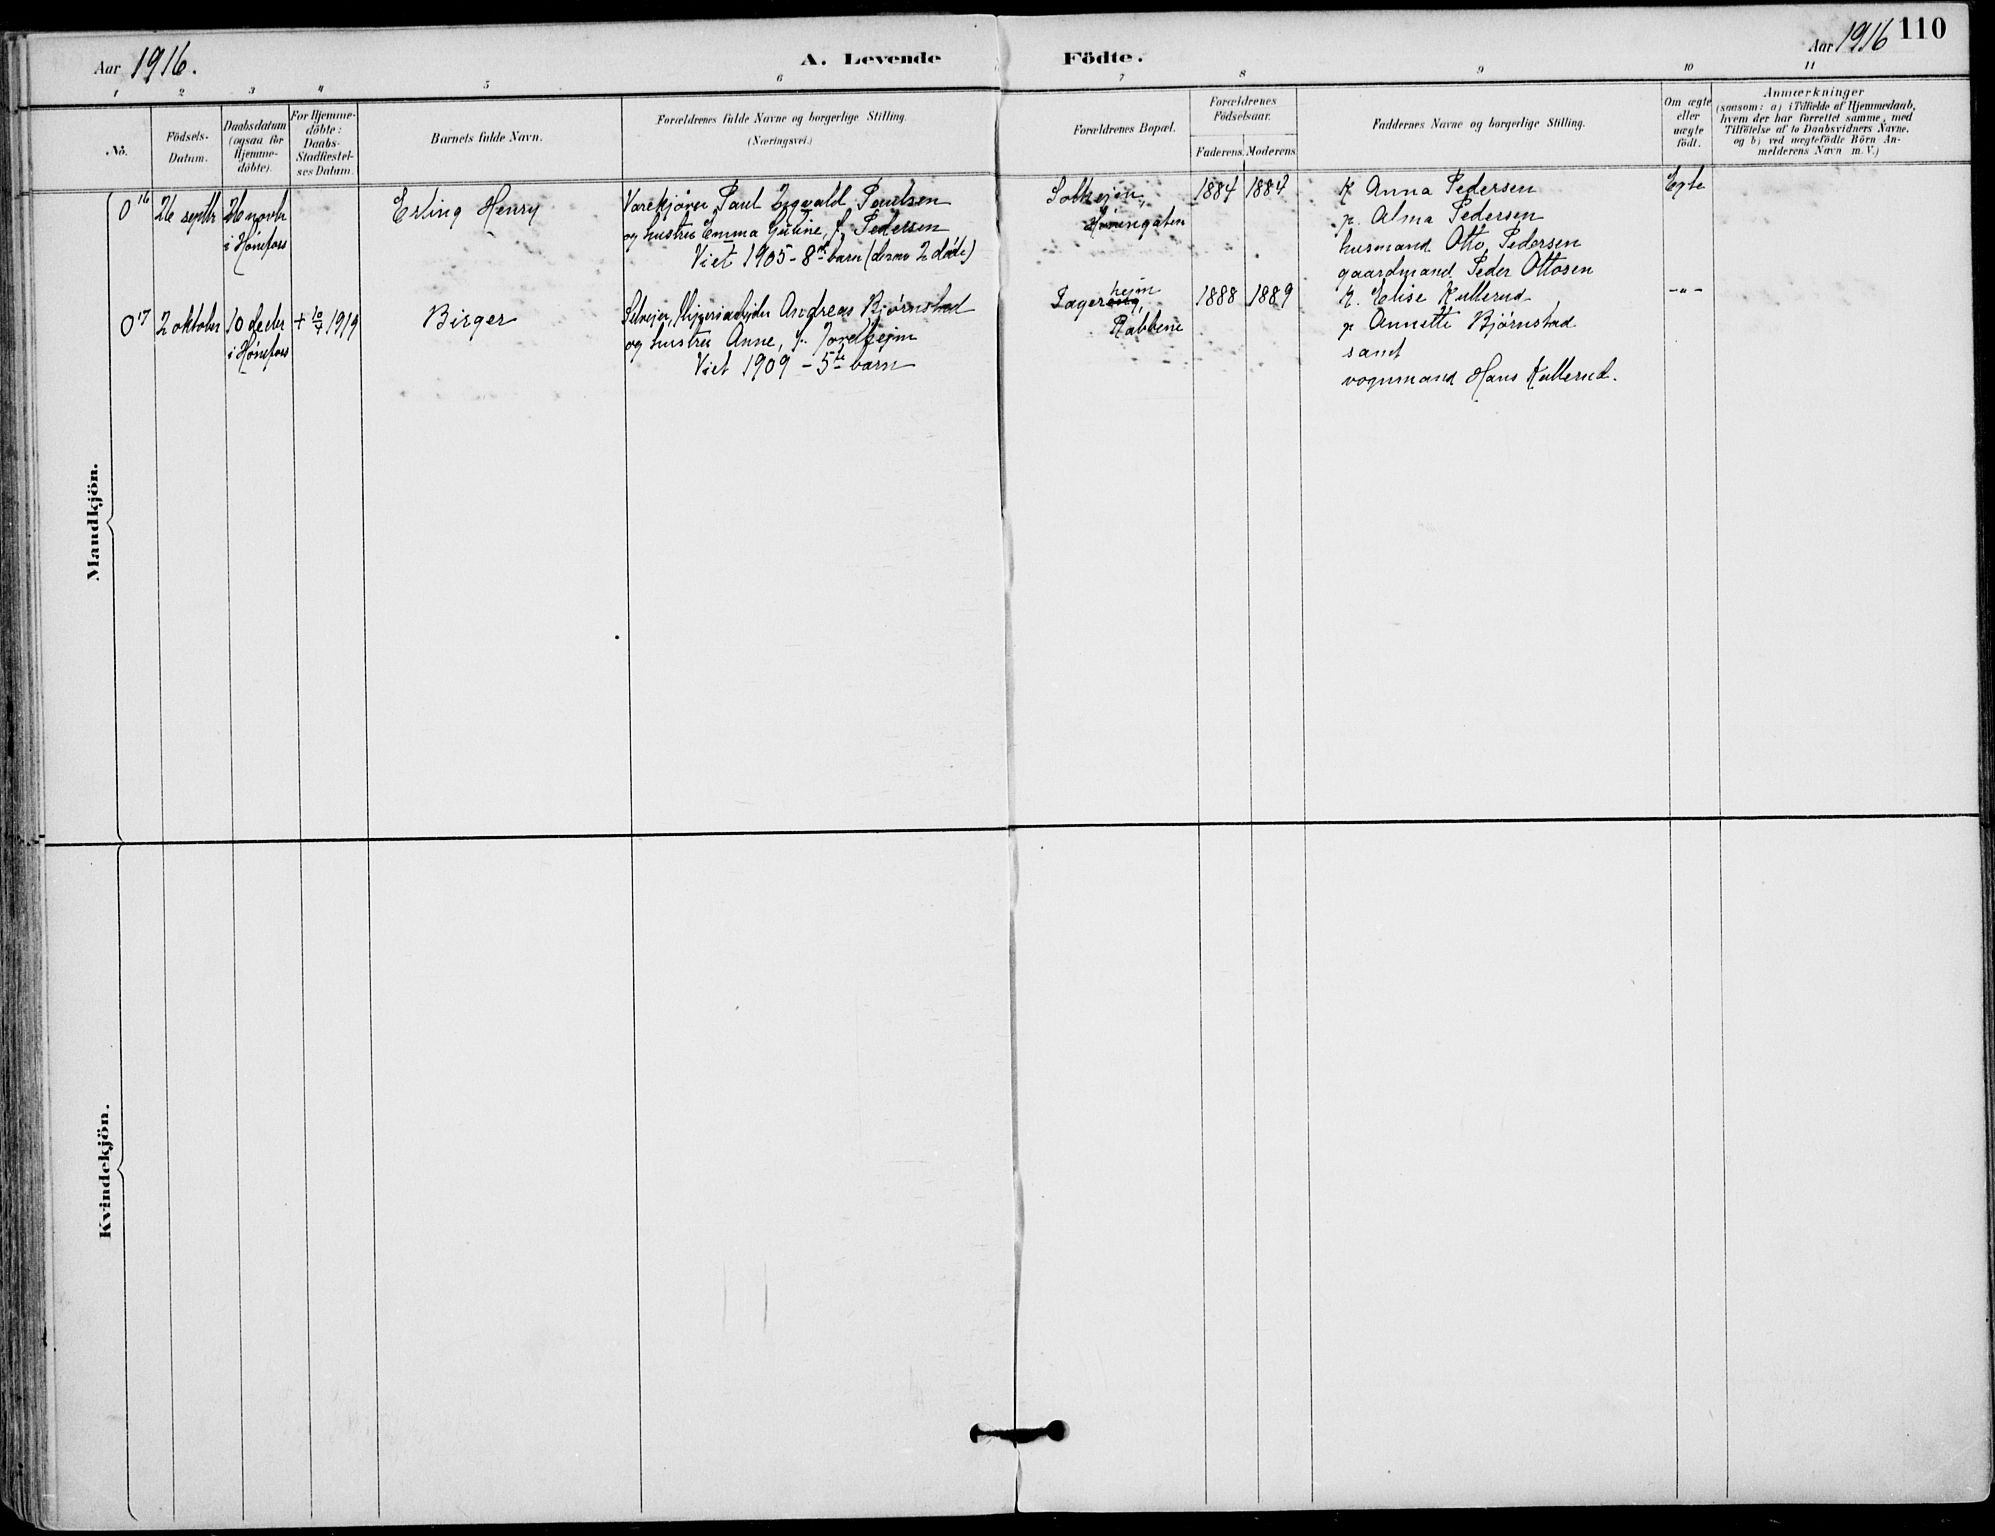 Aar 1916.
A. Levende Födte.
Aar 1916 110
1 2 3 4 5 6 7 8 9 10 11
No.
Födsels-
Datum.
Daabsdatum
(ogsaa for
Hjemme-
döbte).
For Hjemme-
döbte:
Daabs-
Stadfæstel-
ses Datum.
Barnets fulde Navn.
Forældrenes fulde Navne og borgerlige Stilling.
(Næringsvei.)
Forældrenes Bopæl.
Forældrenes
Födselsaar.
Faderens. Moderens.
Faddernes Navne og borgerlige Stilling.
Om ægte
eller
uægte
födt.
Anmærkninger
(saasom: a) i Tilfælde af Hjemmedaab,
hvem der har forrettet samme, med
Tilföielse af to Daabsvidners Navne.
og b) ved uægtefödte Börn An-
melderens Navn m. V.)
Mandkjön.
0 16
26 septbr
26 novbr
i Hønefoss
Erling Henry
Varekjører Paul Sigvald Paulsen
og hustru Emma Gutine, f. Pedersen
Viet 1905 - 8de barn (derav 2 døde)
Solhejm,
Hønengaten
1884 1884
K Anna Pedersen
p. Alma Pedersen
husmand Otto Pedersen
gaardmand Peder Ottosen
Egte
0 17
2 oktober
10 decbr
i Hønefoss
+ 20/7 1919
Birger
Selvejer, sliperiarbejder Andreas Bjørnstad
og hustru Anne, f. Jordhejm
Viet 1909 - 5te barn
hejm
Fagereng,
Rabbene
1888 1889
K. Elise Kullerud
p Annette Bjørnstad
samt
vognmand Hans Kullerud.
-"-
Kvindekjön.